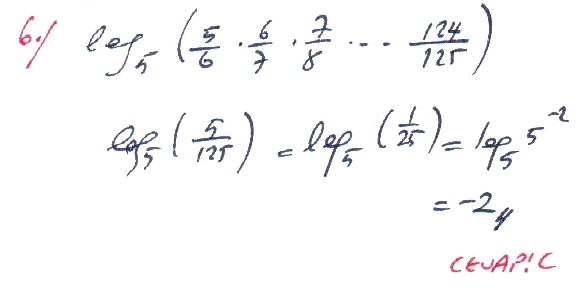 6.) log₅ (5/6 · 6/7 · 7/8 ··· 124/125)
log₅ (5/125) = log₅ (1/25) = log₅ 5⁻²
= -2//
CEVAP: C